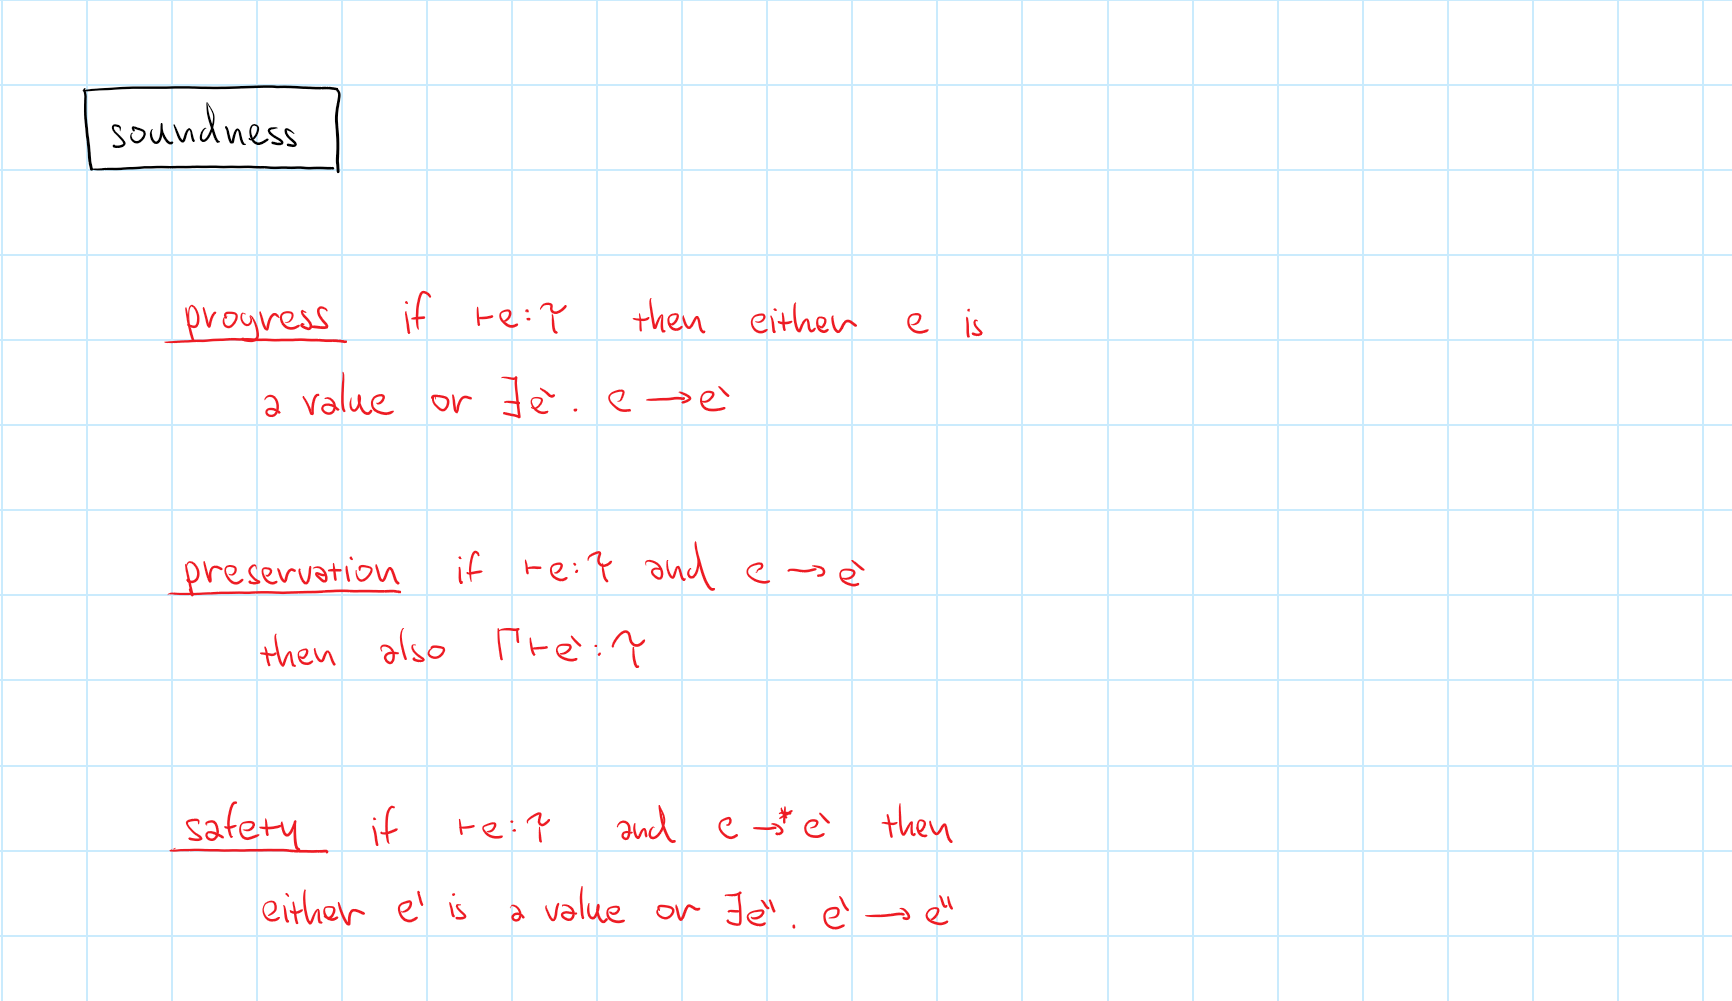 soundness
progress if ⊢e:τ then either e is
a value or ∃e'. e → e'
preservation if ⊢e:τ and e → e'
then also Γ⊢e':τ
safety if ⊢e:τ and e →* e' then
either e' is a value or ∃e''. e' → e''